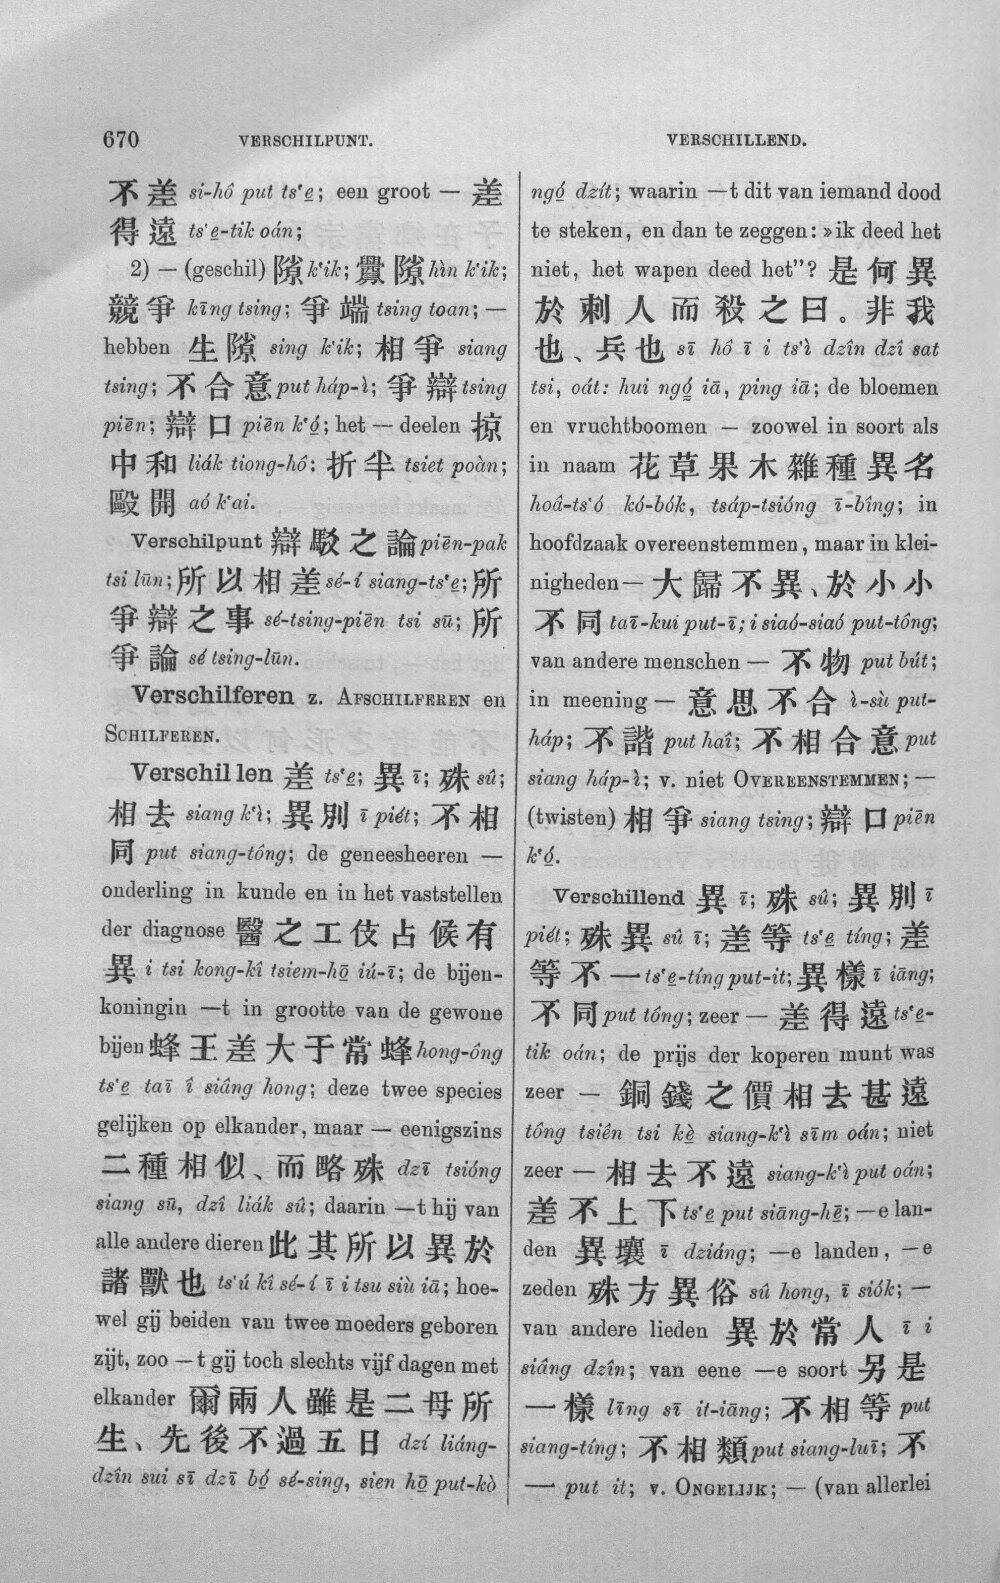 670 VERSCHILPUNT. VERSCHILLEND.
不差 si-hô put ts‘e̲; een groot — 差
得遠 ts‘e̲-tik oán;
2) — (geschil) 隙 k‘ik; 釁隙 hìn k‘ik;
競爭 kīng tsing; 爭端 tsing toan; —
hebben 生隙 sing k‘ik; 相爭 siang
tsing; 不合意 put háp-ì; 爭辯 tsing
piēn; 辯口 piēn k‘ó̲; het — deelen 掠
中和 liák tiong-hô: 折半 tsiet poàn;
毆開 aó k‘ai.
Verschilpunt 辯駁之論 piēn-pak
tsi lūn; 所以相差 sé-í siang-ts‘e̲; 所
爭辯之事 sé-tsing-piēn tsi sū; 所
爭論 sé tsing-lūn.
Verschilferen z. AFSCHILFEREN en
SCHILFEREN.
Verschillen 差 ts‘e̲; 異 ī; 殊 sû;
相去 siang k‘ì; 異別 ī piét; 不相
同 put siang-tông; de geneesheeren —
onderling in kunde en in het vaststellen
der diagnose 醫之工伎占候有
異 i tsi kong-kî tsiem-hō̲ iú-ī; de bijen-
koningin —t in grootte van de gewone
bijen 蜂王差大于常蜂 hong-ông
ts‘e̲ taī î siâng hong; deze twee species
gelijken op elkander, maar — eenigszins
二種相似、而略殊 dzī tsióng
siang sū, dzî liák sû; daarin —t hij van
alle andere dieren 此其所以異於
諸獸也 ts‘ú kî sé-í ī i tsu siù iā; hoe-
wel gij beiden van twee moeders geboren
zijt, zoo —t gij toch slechts vijf dagen met
elkander 爾兩人雖是二母所
生、先後不過五日 dzí liáng-
dzîn sui sī dzī bó̲ sé-sing, sien hō̲ put-kò
ngó̲ dzít; waarin —t dit van iemand dood
te steken, en dan te zeggen: »ik deed het
niet, het wapen deed het”? 是何異
於刺人而殺之曰。非我
也、兵也 sī hô ī i ts‘ì dzîn dzî sat
tsi, oát: hui ngó̲ iā, ping iā; de bloemen
en vruchtboomen — zoowel in soort als
in naam 花草果木雜種異名
hoâ-ts‘ó kó-bók, tsáp-tsióng ī-bîng; in
hoofdzaak overeenstemmen, maar in klei-
nigheden — 大歸不異、於小小
不同 taī-kui put-ī; i siaó-siaó put-tông;
van andere menschen — 不物 put bút;
in meening — 意思不合 ì-sù put-
háp; 不諧 put haî; 不相合意 put
siang háp-ì; v. niet OVEREENSTEMMEN; —
(twisten) 相爭 siang tsing; 辯口 piēn
k‘ó̲.
Verschillend 異 ī; 殊 sû; 異別 ī
piét; 殊異 sû ī; 差等 ts‘e̲ tíng; 差
等不一 ts‘e̲-tíng put-it; 異樣 ī iāng;
不同 put tông; zeer — 差得遠 ts‘e̲-
tik oán; de prijs der koperen munt was
zeer — 銅錢之價相去甚遠
tông tsiên tsi kè̲ siang-k‘ì sīm oán; niet
zeer — 相去不遠 siang-k‘ì put oán;
差不上下 ts‘e̲ put siāng-hē̲; —e lan-
den 異壤 ī dziáng; —e landen, —e
zeden 殊方異俗 sû hong, ī siók; —
van andere lieden 異於常人 ī i
siâng dzîn; van eene —e soort 另是
一樣 līng sī it-iāng; 不相等 put
siang-tíng; 不相類 put siang-luī; 不
一 put it; v. ONGELIJK; — (van allerlei